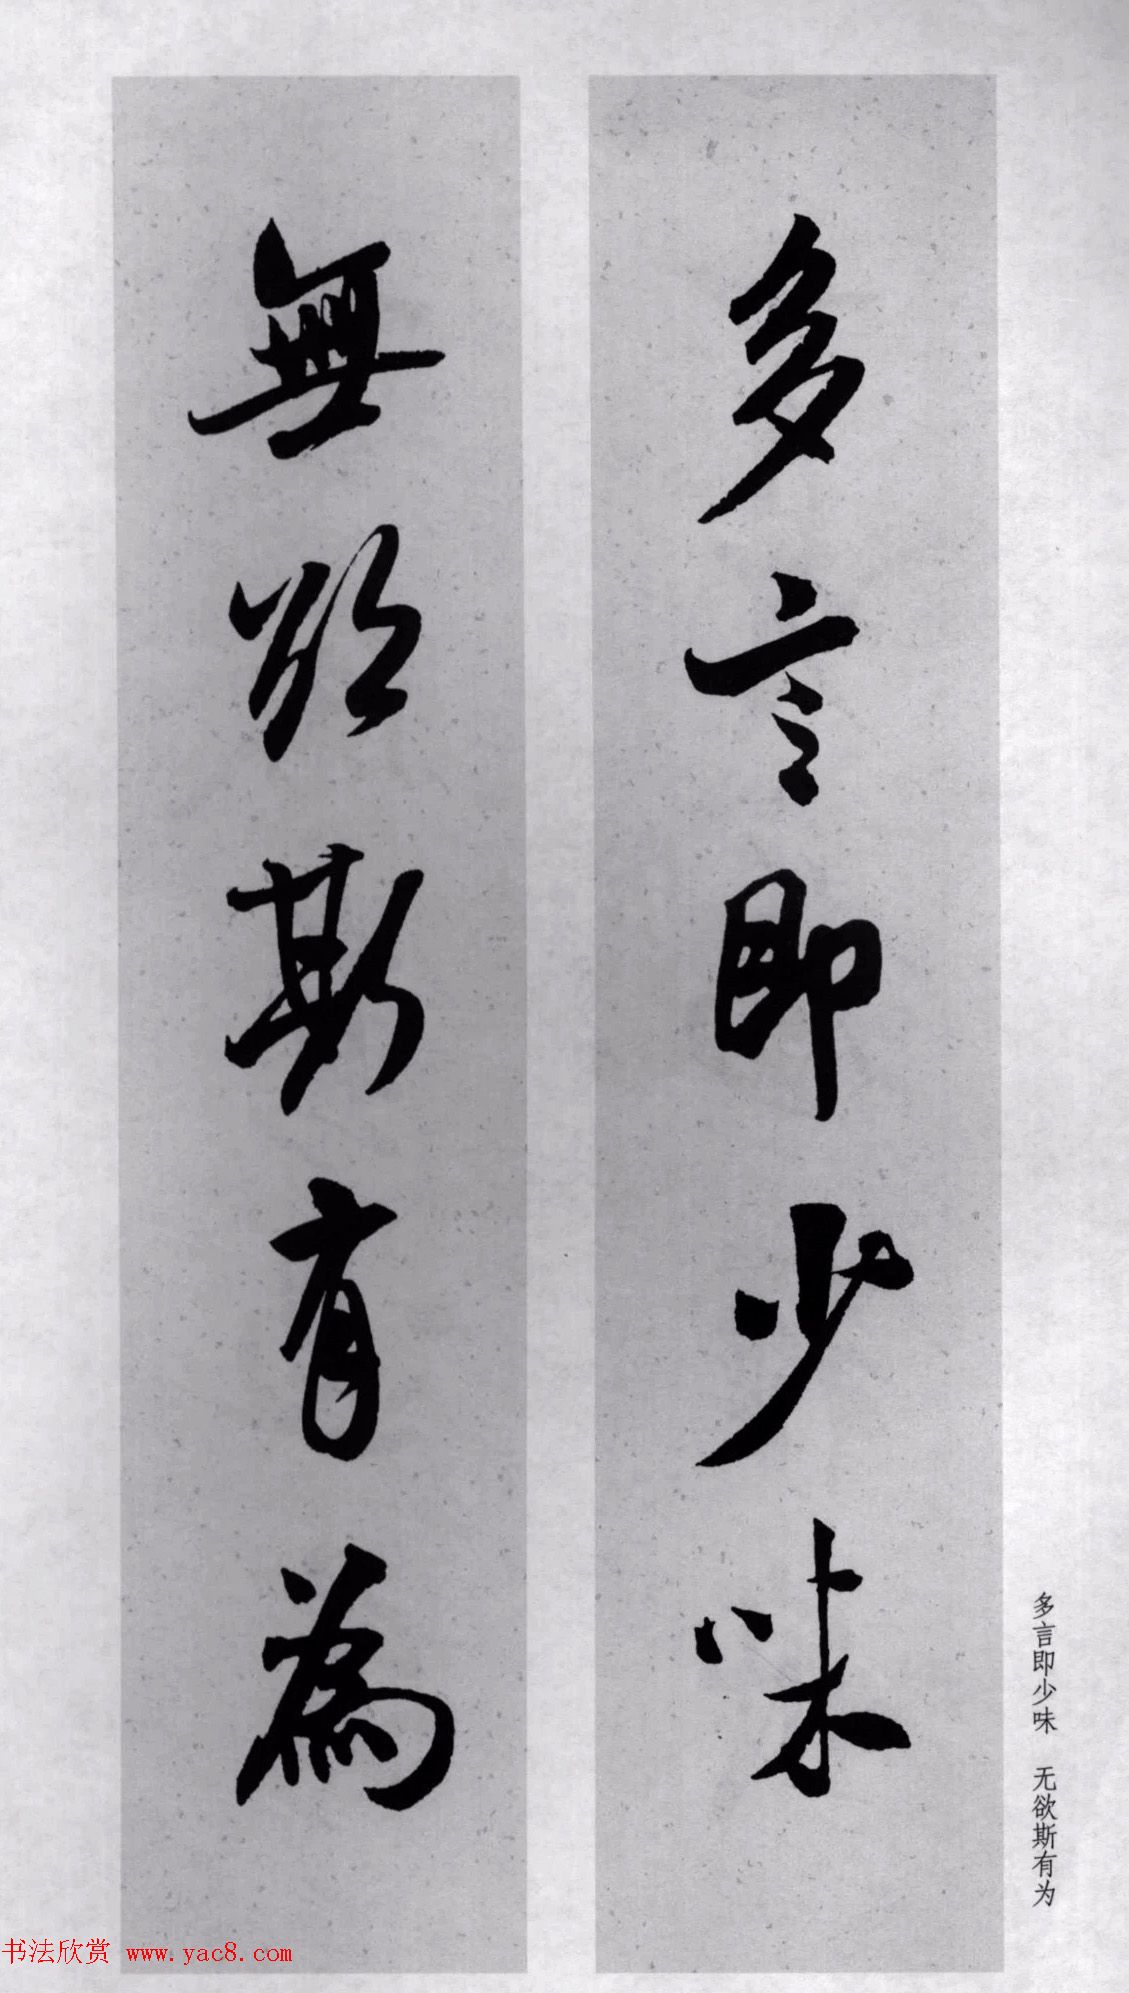 多言即少味
無欲斯有為
多言即少味 无欲斯有为
书法欣赏 www.yac8.com